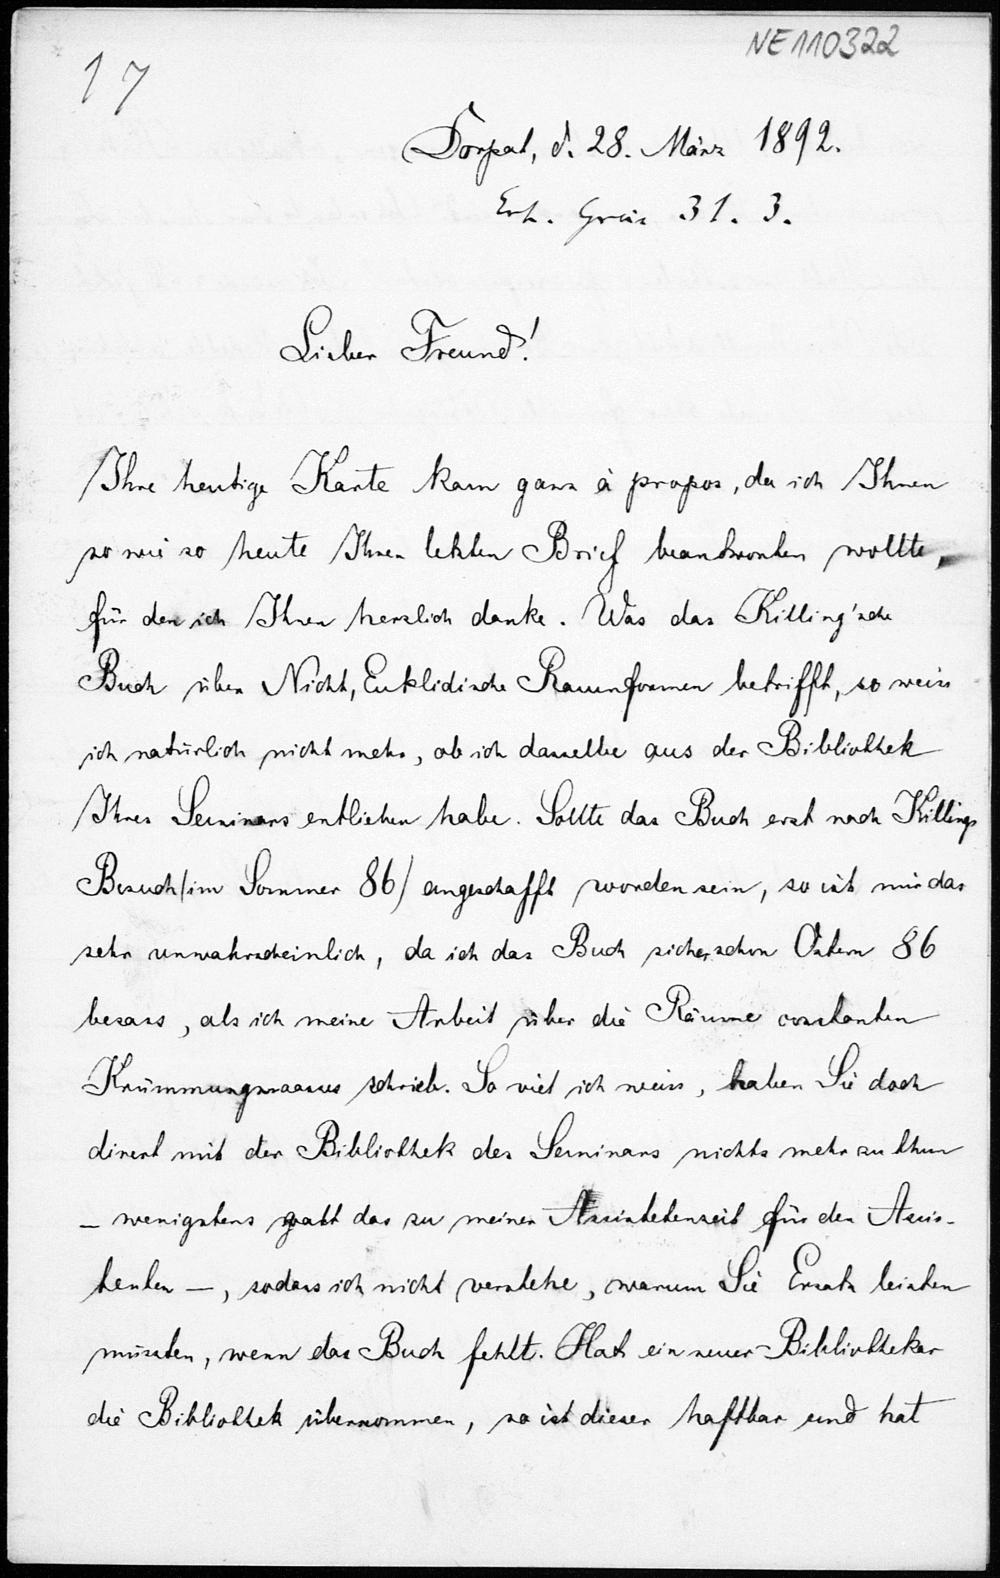 17
NE110322
Dorpat, d. 28. März 1892.
Erh. Greiz 31. 3.
Lieber Freund!
Ihre heutige Karte kam ganz à propos, da ich Ihnen
so wie so heute Ihren letzten Brief beantworten wollte,
für den ich Ihnen herzlich danke. Was das Killing'sche
Buch über Nicht, Euklidische Raumformen betrifft, so weiss
ich natürlich nicht mehr, ob ich dasselbe aus der Bibliothek
Ihres Seminars entliehen habe. Sollte das Buch erst nach Killings
Besuch (im Sommer 86) angeschafft worden sein, so ist mir das
sehr unwahrscheinlich, da ich das Buch sicher schon Ostern 86
besass, als ich meine Arbeit über die Räume constanten
Krümmungsmaasses schrieb. So viel ich weiss, haben Sie doch
direct mit der Bibliothek des Seminars nichts mehr zu thun
– wenigstens galt das zu meiner Assistentenzeit für den Assis-
tenten –, sodass ich nicht verstehe, warum Sie Ersatz leisten
müssten, wenn das Buch fehlt. Hat ein neuer Bibliothekar
die Bibliothek übernommen, so ist dieser haftbar und hat